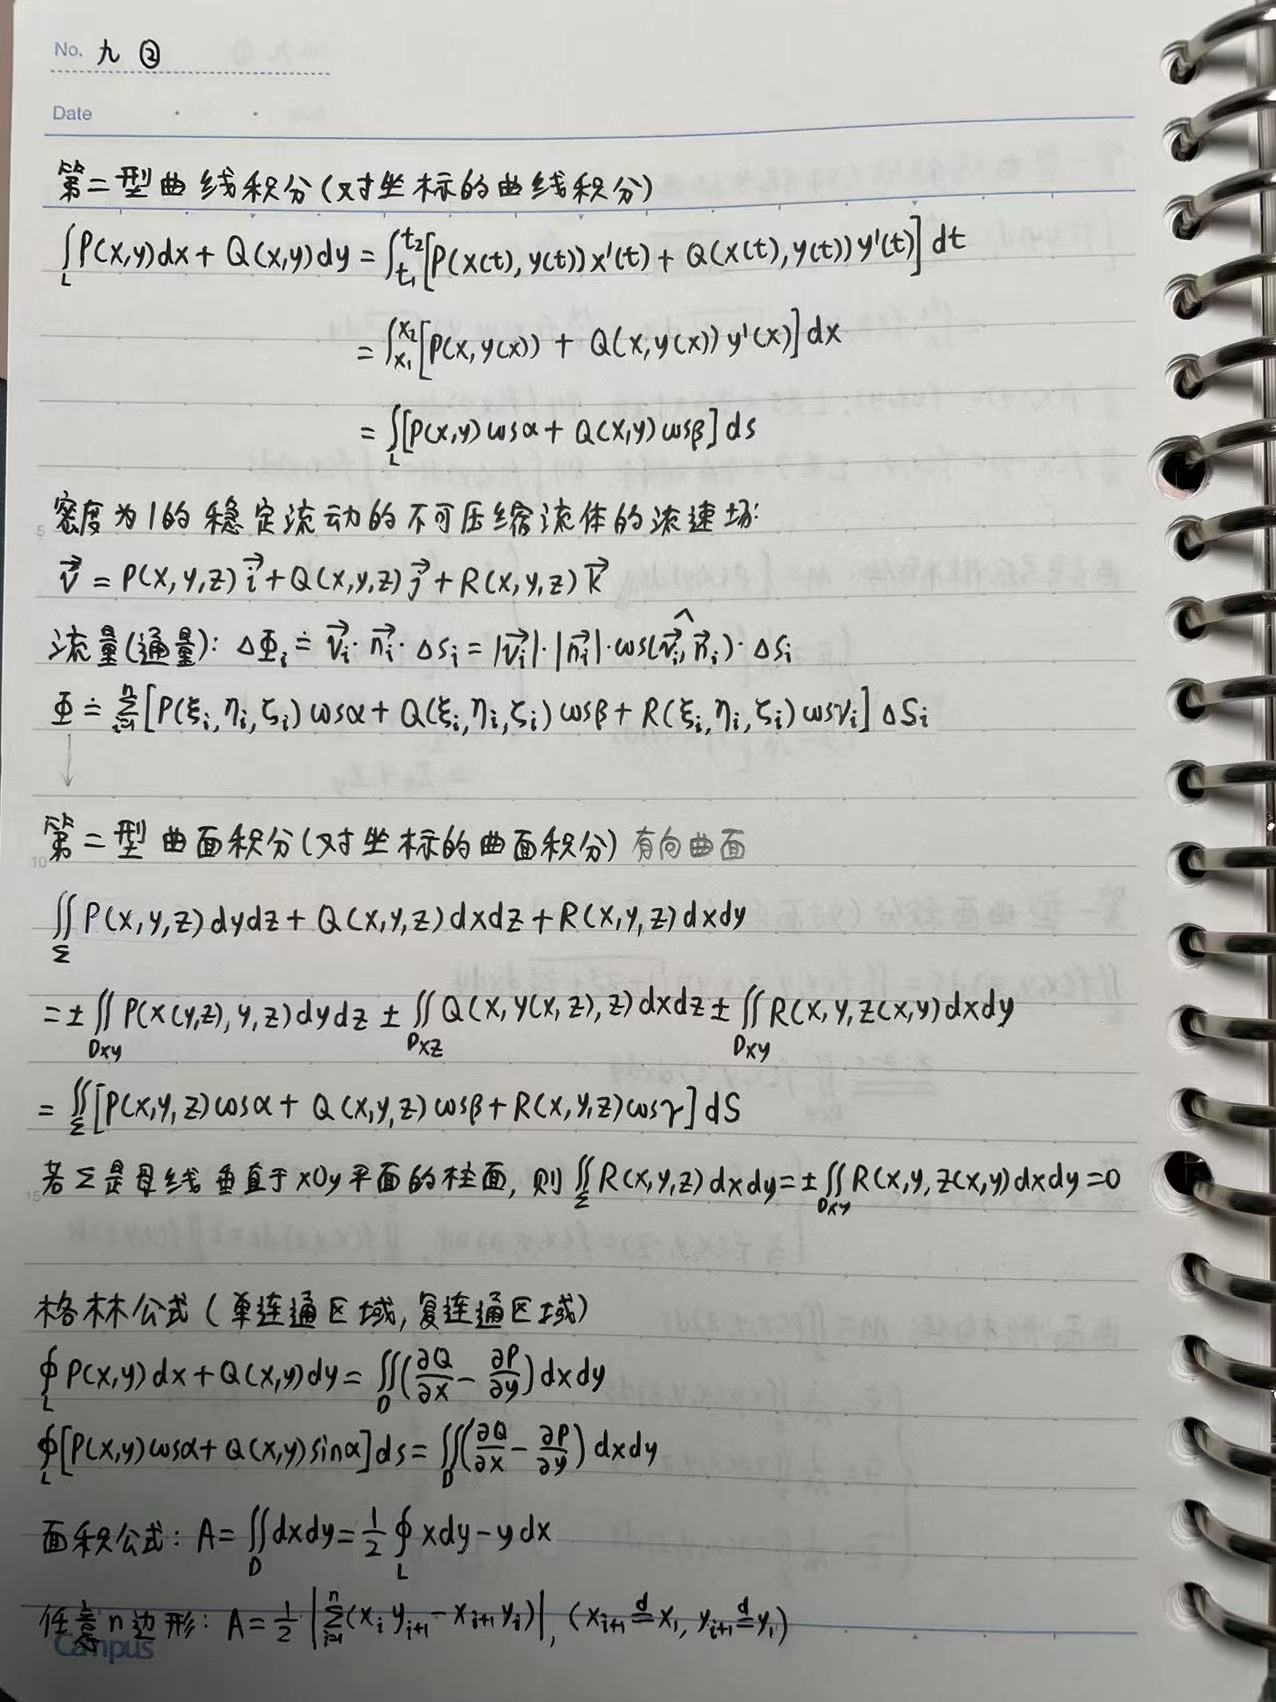 No. 九 ②
Date
第二型曲线积分(对坐标的曲线积分)
∫_L P(x,y)dx + Q(x,y)dy = ∫_{t₁}^{t₂}[P(x(t), y(t)) x'(t) + Q(x(t), y(t)) y'(t)] dt
= ∫_{x₁}^{x₂}[P(x, y(x)) + Q(x, y(x)) y'(x)] dx
= ∫_L [P(x,y) cosα + Q(x,y) cosβ] ds
密度为1的稳定流动的不可压缩流体的流速场:
v⃗ = P(x,y,z) i⃗ + Q(x,y,z) j⃗ + R(x,y,z) k⃗
流量(通量): ΔΦᵢ ≐ v⃗ᵢ · n⃗ᵢ · ΔSᵢ = |v⃗ᵢ|·|n⃗ᵢ|·cos(v⃗ᵢ,^n⃗ᵢ)·ΔSᵢ
Φ ≐ Σ_{i=1}^{n} [P(ξᵢ,ηᵢ,ζᵢ) cosα + Q(ξᵢ,ηᵢ,ζᵢ) cosβ + R(ξᵢ,ηᵢ,ζᵢ) cosγᵢ] ΔSᵢ
↓
第二型曲面积分(对坐标的曲面积分) 有向曲面
∬_Σ P(x,y,z) dydz + Q(x,y,z) dxdz + R(x,y,z) dxdy
= ± ∬_{Dxy} P(x(y,z), y, z) dydz ± ∬_{Dxz} Q(x, y(x,z), z) dxdz ± ∬_{Dxy} R(x, y, z(x,y) dxdy
= ∬_Σ [P(x,y,z) cosα + Q(x,y,z) cosβ + R(x,y,z) cosγ] dS
若Σ是母线垂直于xOy平面的柱面, 则 ∬_Σ R(x,y,z) dxdy = ± ∬_{Dxy} R(x,y, z(x,y) dxdy = 0
格林公式(单连通区域, 复连通区域)
∮_L P(x,y) dx + Q(x,y) dy = ∬_D (∂Q/∂x − ∂P/∂y) dxdy
∮_L [P(x,y) cosα + Q(x,y) sinα] ds = ∬_D (∂Q/∂x − ∂P/∂y) dxdy
面积公式: A = ∬_D dxdy = 1/2 ∮_L xdy − ydx
任意n边形: A = 1/2 |Σ_{i=1}^{n} (xᵢ yᵢ₊₁ − xᵢ₊₁ yᵢ)|, (xᵢ₊₁ ≝ x₁, yᵢ₊₁ ≝ y₁)
Campus
5
10
15